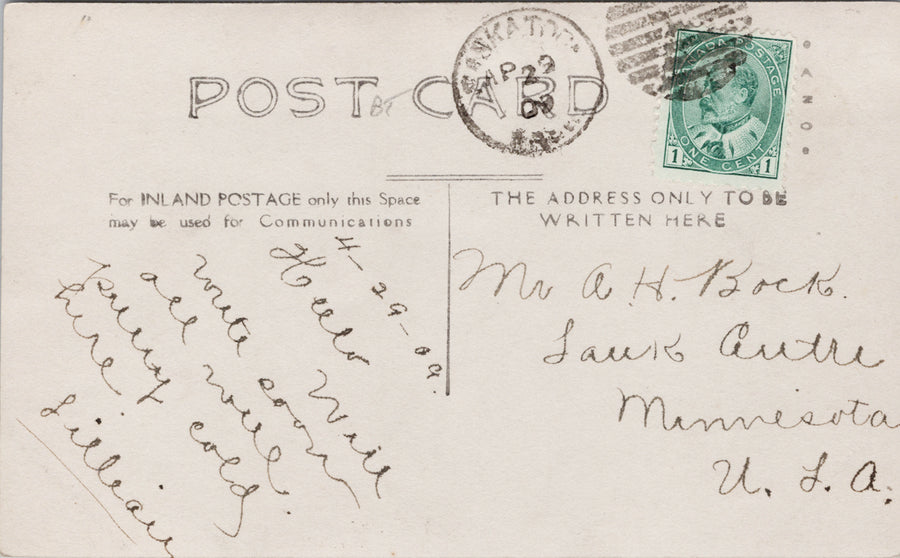 POST CARD
SASKATOON
AP 29
09
CANADA POSTAGE
1 ONE CENT 1
CANO
For INLAND POSTAGE only this Space
may be used for Communications
THE ADDRESS ONLY TO BE
WRITTEN HERE
4-29-09.
Hello Will
write soon
all well.
Pretty cold
here
Lillian
Mr A. H. Bock.
Sauk Centre
Minnesota
U. S. A.